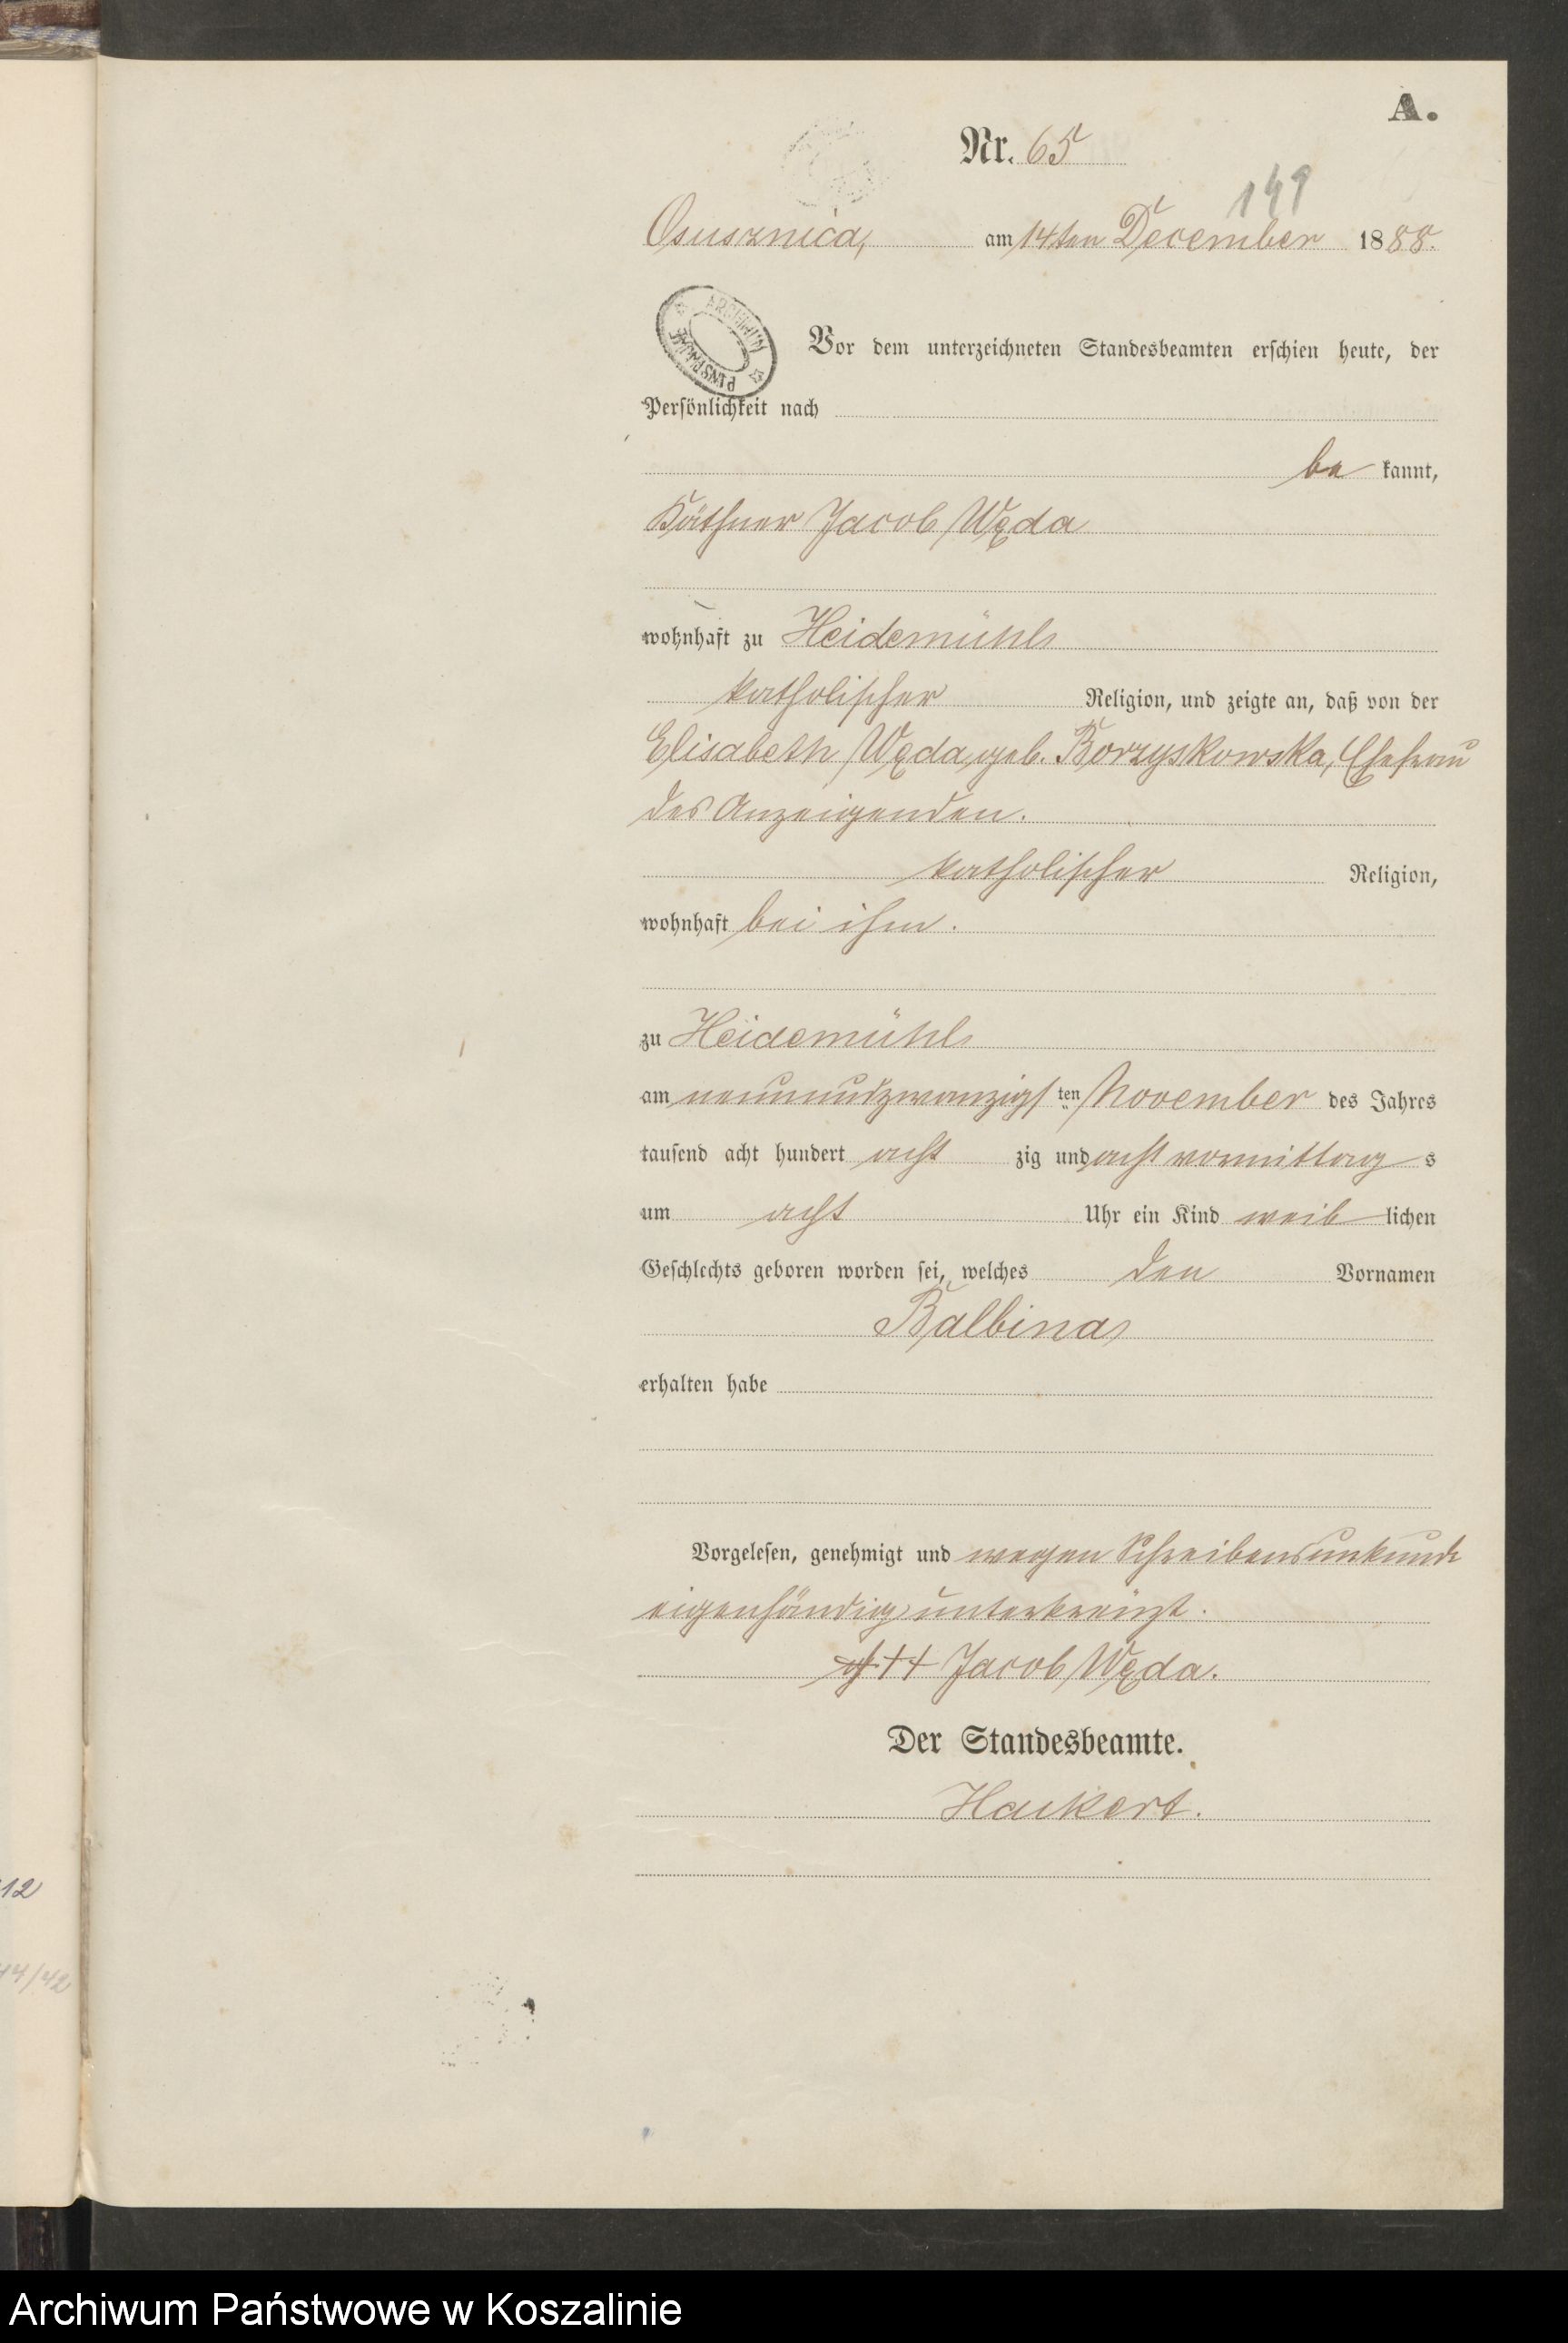 A.
Nr. 65
149
Osusznica, am 14ten December 1888.
ARCHIWUM PAŃSTWOWE
Vor dem unterzeichneten Standesbeamten erschien heute, der
Persönlichkeit nach
be kannt,
Käthner Jacob Węda
wohnhaft zu Heidemühl
katholischer Religion, und zeigte an, daß von der
Elisabeth Węda, geb. Borzyskowska, Ehefrau
des Anzeigenden.
katholischer Religion,
wohnhaft bei ihm.
zu Heidemühl
am neunundzwanzigs ten November des Jahres
tausend acht hundert acht zig und acht vormittag s
um acht Uhr ein Kind weib lichen
Geschlechts geboren worden sei, welches den Vornamen
Balbina
erhalten habe
Vorgelesen, genehmigt und wegen Schreibensunkunde
eigenhändig unterkreuzt.
+++ Jacob Węda.
Der Standesbeamte.
Haikert.
12
44/42
Archiwum Państwowe w Koszalinie